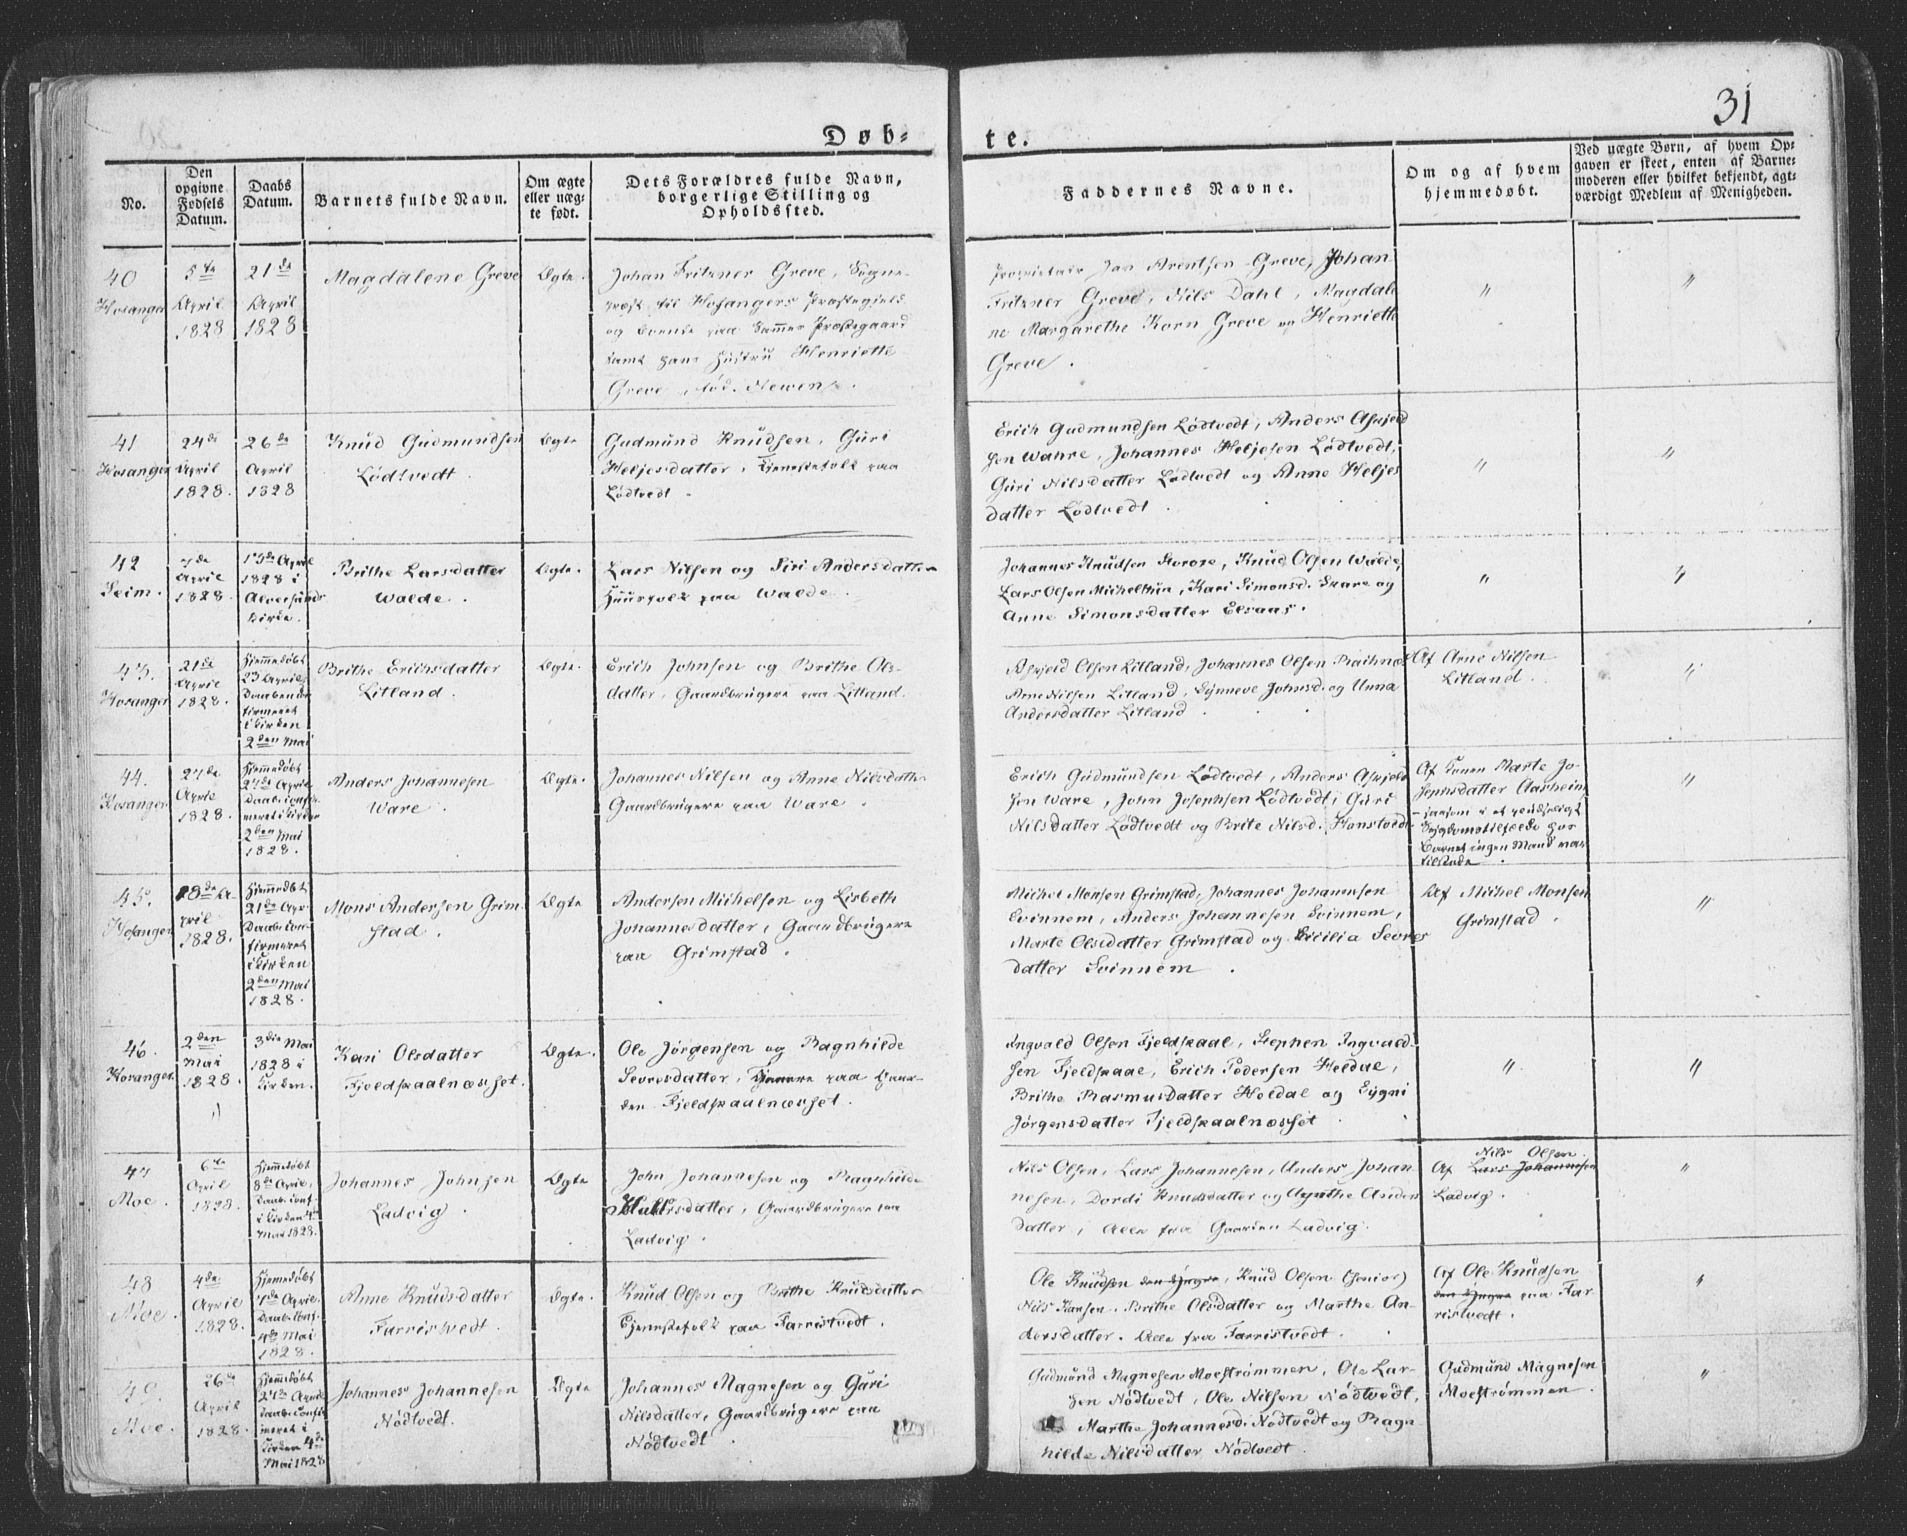 31
Døb=
te.
No.
Den
opgivne
Fødsels
Datum.
Daabs
Datum.
Barnets fulde Navn.
Om ægte
eller uæg-
te født.
Dets Forældres fulde Navn,
borgerlige Stilling og
Opholdssted.
Faddernes Navne.
Om og af hvem
hjemmedøbt.
Ved uægte Børn, af hvem Op-
gaven er skeet, enten af Barne-
moderen eller hvilket bekjendt, agt-
værdigt Medlem af Menigheden.
40
Hosanger
5te
April
1828
21de
April
1828
Magdalene Greve
Ægte.
Johan Fritzner Greve, Sogne-
præst til Hosangers Præstegjeld
og boende paa Samme Præstegaard
samt hans Hustru Henriette
Greve, fød
Jan Arentsen Greve, Johan
Fritzner Greve, Nils Dahl, Magdale
ne Margarethe Korn Greve og Henriette
Greve.
"
"
41
Hosanger
24de
April
1828.
26de
April
1828
Knud Gudmundsen
Lødtvedt
Ægte
Gudmund Knudsen, Guri
Heljesdatter, Tjenestefolk paa
Lødtvedt.
Erich Gudmundsen Lødtvedt, Anders Askjeld
sen Wahre, Johannes Heljesen Lødtvedt,
Guri Nilsdatter Lødtvedt og Anne Heljes
datter Lødtvedt.
"
"
42
Seim.
7de
April
1828
13de April
1828 i
Alversunds
Kirke.
Brithe Larsdatter
Walde.
Ægte.
Lars Nilsen og Siri Andersdatter
Huusfolk paa Walde.
Johannes Knudsen Storore, Knud Olsen Walde,
Lars Olsen Micheltun, Kari Simonsd. Skare og
Anne Simonsdatter Elsaas.
"
"
43.
Hosanger
21de
April
1828.
Hjemmedøbt
23 April,
Daaben con
firmeret
i Kirken
2den Mai
Brithe Erichsdatter
Litland.
Ægte.
Erich Johnsen og Brithe Ols-
datter, Gaardbrugere paa Litland.
Askjeld Olsen Litland, Johannes Olsen
Arne Nilsen Litland, Synneve Johnsd. og Unna
Andersdatter Litland.
Af Arne Nilsen
Litland.
"
44.
Hosanger
27de
April
1828.
Hjemmedøbt
27de April
Daab. confir
meret i Kirken
2den Mai
1828.
Anders Johannesen
Ware.
Ægte.
Johannes Nilsen og Anne Nilsdatter
Gaardbrugere paa Ware.
Erich Gudmundsen Lødtvedt, Anders Askjeld
sen Ware, John Josephsen Lødtvedt, Guri
Nilsdatter Lødtvedt og Brite Nilsd. Hanstvedt
Af Konen Marte Jo-
sephsdatter Aarheim
saasom i et
hos
Barnet ingen Mand var
tilstede.
"
45.
Hosanger
18de A-
pril
1828.
Hjemmedøbt
21de Apr.
Daab. con-
firmeret
i Kirken
2den Mai
1828.
Mons Andersen Grim-
stad.
Ægte
Andersen Michelsen og Lisbeth
Johannesdatter, Gaardbrugere
paa Grimstad.
Michel Monsen Grimstad, Johannes Johannesen
Svinnem, Anders Johannesen Svinnem,
Marte Olsdatter Grimstad og Sicilia Sevres
datter Svinnem.
Af Michel Monsen
Grimstad.
"
46.
Hosanger.
2den
Mai
1828.
"
3die Mai
1828 i
Kirken.
Kari Olsdatter
Fjeldskaalnæsset.
Ægte.
Ole Jørgensen og Ragnhilde
Sevresdatter, paa Gaar-
den Fjeldskaalnæsset.
Ingvald Olsen Fjeldskaal, Stephen Ingvald-
sen Fjeldskaal, Erich Pedersen Heldal,
Brithe Rasmusdatter Heldal og Sygni
Jørgensdatter Fjeldskaalnæsset.
"
"
47
Moe.
6te
April
1828.
Hjemmedøbt
8de April,
Daab. conf.
i Kirken 4de
Mai 1828.
Johannes Johnsen
Ladvig.
Ægte
John Johannesen og Ragnhilde
datter, Gaardbrugere paa
Ladvig.
Nils Olsen, Lars Johannesen, Anders Johan-
nesen, Dordi Knudsdatter og Agathe Anders
datter, Alle fra Gaarden Ladvig.
Nils Olsen
Af Lars Johannesen
Ladvig.
"
48
Moe.
4de
April
1828.
Hjemmedøbt
7de April
Daab. conf.
4de Mai
1828.
Anne Knudsdatter
Farristvedt.
Ægte.
Knud Olsen og Brithe Knudsdatter
Tjenestefolk paa Farristvedt.
Ole Knudsen den Yngre, Knud Olsen (Senior)
Nils Hansen, Brithe Olsdatter og Marthe An-
dersdatter. Alle fra Farristvedt.
Af Ole Knudsen
den Yngre paa Far-
ristvedt.
"
49
Moe.
26de
April
1828.
Hjemmedøbt
27de April
Daab. confir
meret i
Kirken 4de
Mai 1828
Johannes Johannesen
Nødtvedt.
Ægte
Johannes Magnesen og Guri
Nilsdatter, Gaardbrugere paa
Nødtvedt.
Gudmund Magnesen Moestrømmen, Ole Lar-
sen Nødtvedt, Ole Nilsen Nødtvedt,
Marthe Johannesd. Nødtvedt og Ragn
hilde Nilsdatter Nødtvedt.
Gudmund Magnesen
Moestrømmen.
"